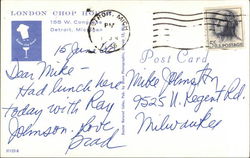 LONDON CHOP H
155 W. Con
Detroit, Mich
DETROIT, MICH
PM
U.S. POSTAGE
Post Card
15 June
Dear Mike -
Had lunch here
today with Ray
Johnson. Love
Brad
Mike Johnston
9525 N. Regent Rd.
Milwaukee